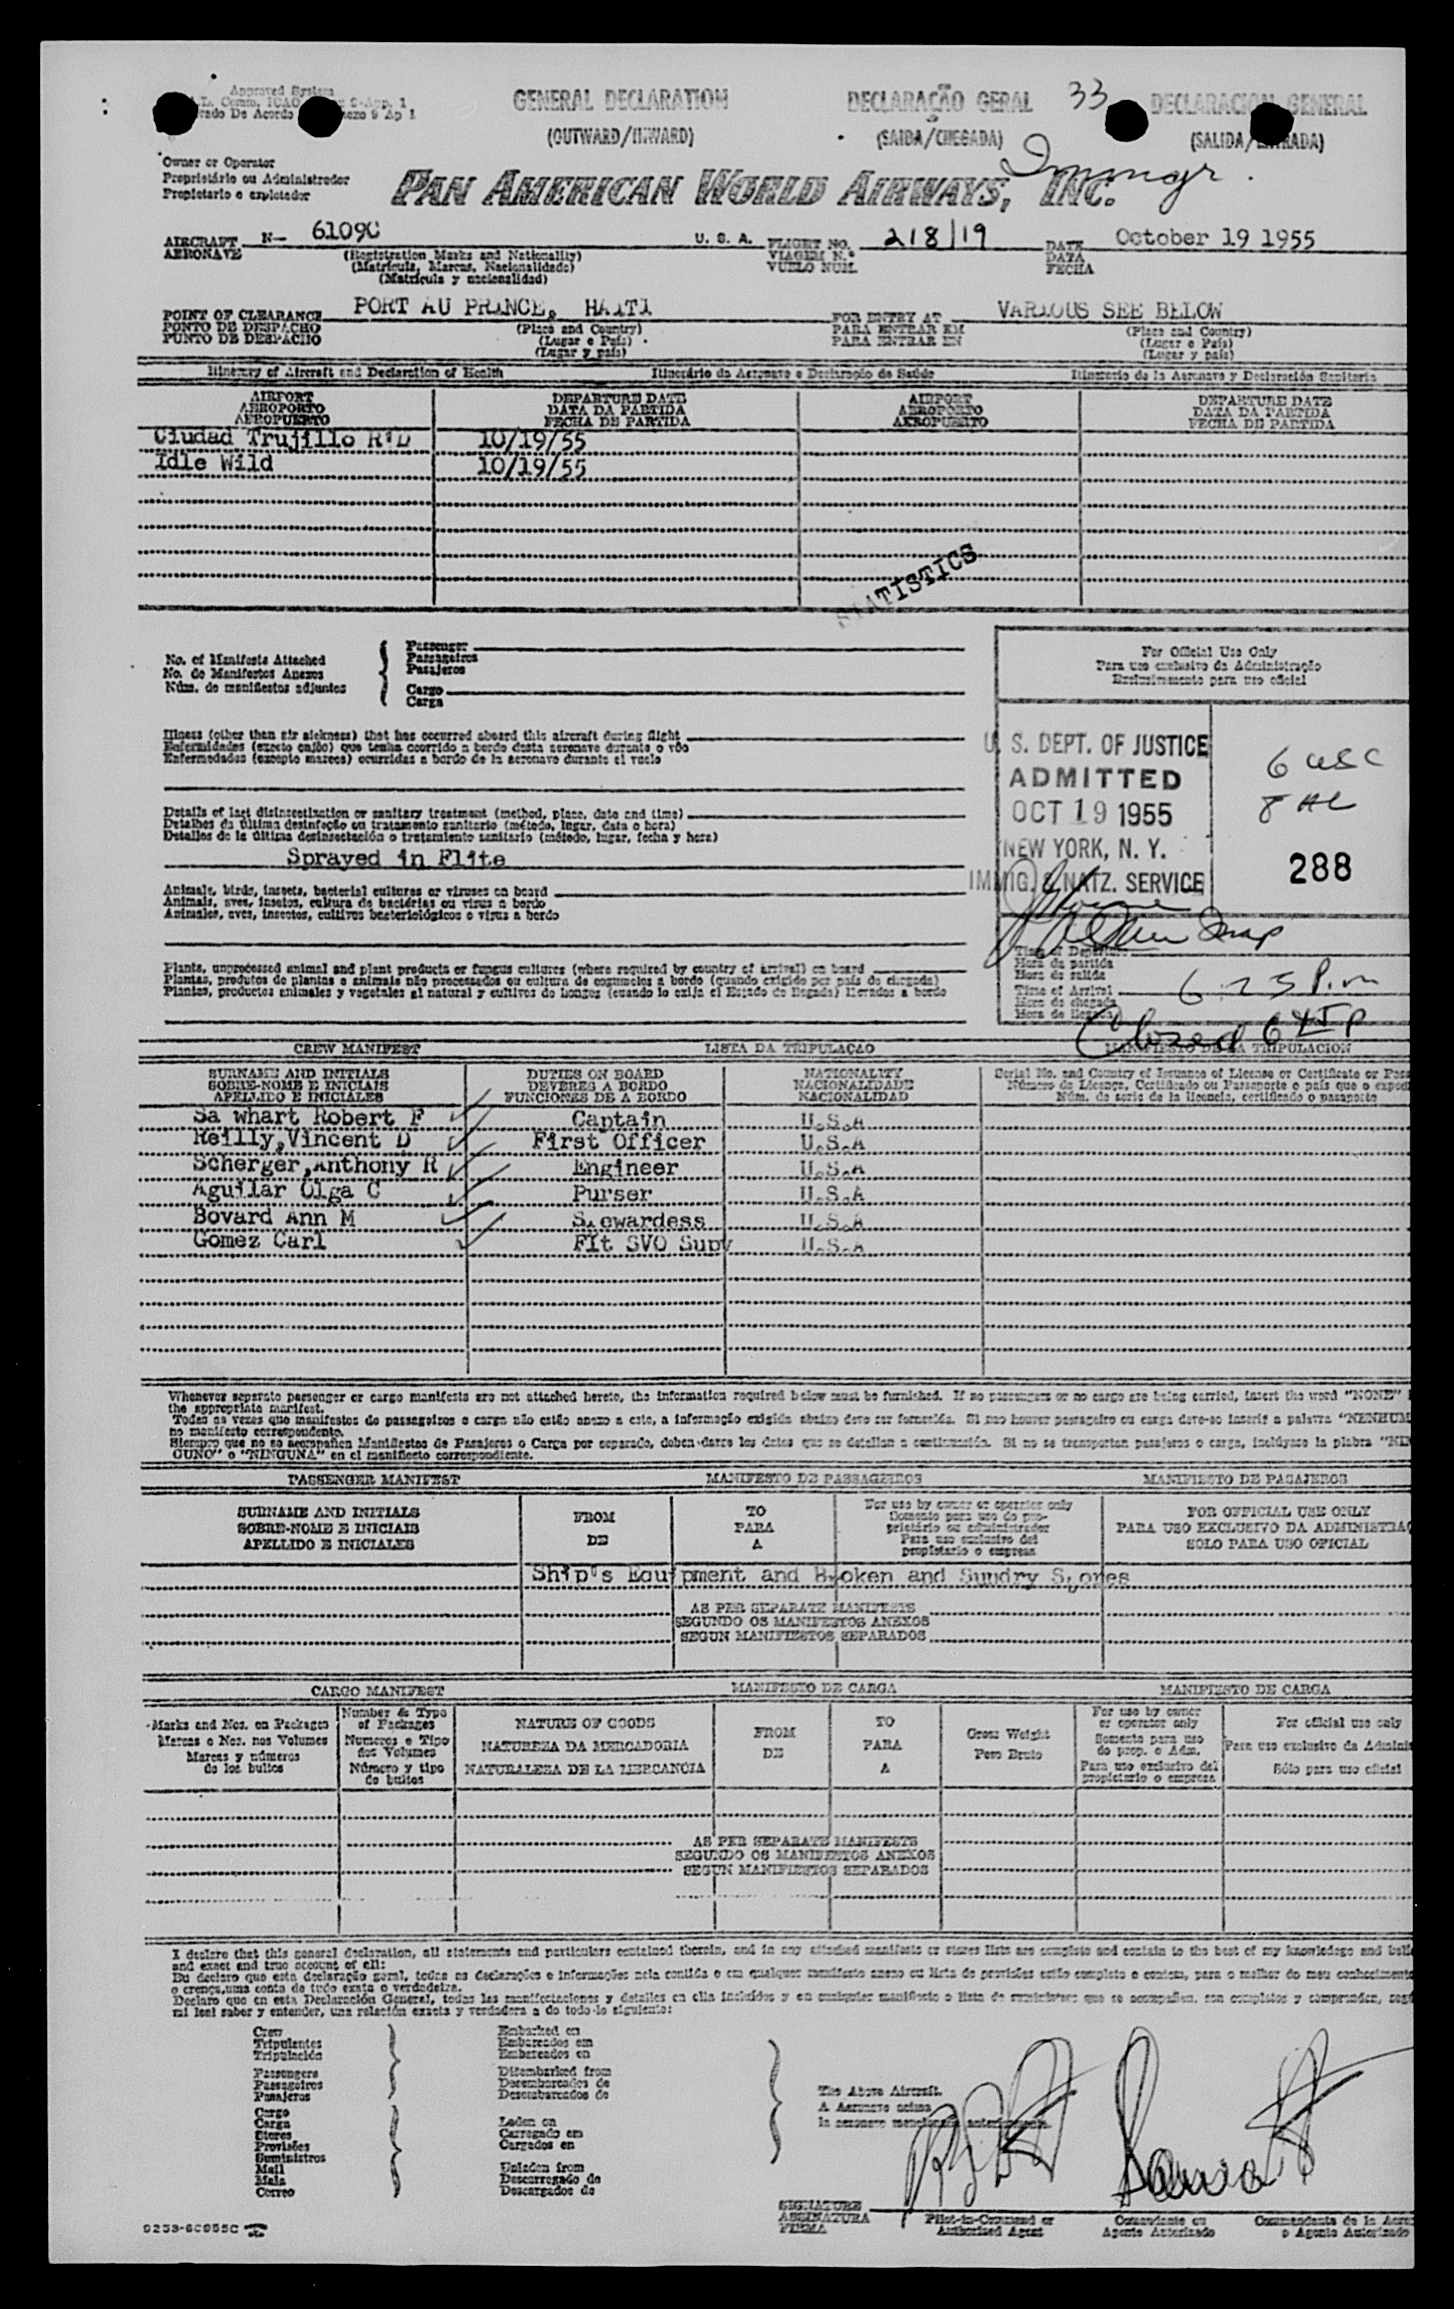 Approved System
GENERAL DECLARATION
(OUTWARD/INWARD)
DECLARAÇÃO GERAL
(SAIDA/CHEGADA)
33
DECLARACION GENERAL
(SALIDA/ENTRADA)
Immigr.
Owner or Operator
Proprietário ou Administrador
Propietario o explotador
PAN AMERICAN WORLD AIRWAYS, INC.
AIRCRAFT N- 6109C U. S. A. FLIGHT NO. 218/19 DATE October 19 1955
AERONAVE (Registration Marks and Nationality) VIAGEM N.º DATA
(Matrícula, Marcas, Nacionalidade) VUELO NUM. FECHA
(Matrícula y nacionalidad)
POINT OF CLEARANCE PORT AU PRINCE, HAITI FOR ENTRY AT VARIOUS SEE BELOW
PONTO DE DESPACHO (Place and Country) PARA ENTRAR EM (Place and Country)
PUNTO DE DESPACHO (Lugar e País) PARA ENTRAR EN (Lugar e País)
(Lugar y país) (Lugar y país)
Itinerary of Aircraft and Declaration of Health Itinerário da Aeronave e Declaração de Saúde Itinerario de la Aeronave y Declaración Sanitaria
AIRPORT DEPARTURE DATE AIRPORT DEPARTURE DATE
AEROPORTO DATA DA PARTIDA AEROPORTO DATA DA PARTIDA
AEROPUERTO FECHA DE PARTIDA AEROPUERTO FECHA DE PARTIDA
Ciudad Trujillo R*D 10/19/55
Idle Wild 10/19/55
STATISTICS
No. of Manifests Attached
No. de Manifestos Anexos
Núm. de manifiestos adjuntos
Passenger
Passageiros
Pasajeros
Cargo
Carga
For Official Use Only
Para uso exclusivo da Administração
Exclusivamente para uso oficial
Illness (other than air sickness) that has occurred aboard this aircraft during flight
Enfermidades (exceto enjôo) que tenha ocorrido a bordo desta aeronave durante o vôo
Enfermedades (excepto mareos) ocurridas a bordo de la aeronave durante el vuelo
U. S. DEPT. OF JUSTICE
ADMITTED
OCT 19 1955
NEW YORK, N. Y.
IMMIG. & NATZ. SERVICE
6 usc
8 al
288
Details of last disinsectization or sanitary treatment (method, place, date and time)
Detalhes da última desinfeção ou tratamento sanitario (método, lugar, data e hora)
Detalles de la última desinsectación o tratamiento sanitario (método, lugar, fecha y hora)
Sprayed in Flite
Animals, birds, insects, bacterial cultures or viruses on board
Animais, aves, insetos, cultura de bactérias ou virus a bordo
Animales, aves, insectos, cultivos bacteriológicos o virus a bordo
Plants, unprocessed animal and plant products or fungus cultures (where required by country of arrival) on board
Plantas, produtos de plantas e animais não processados ou cultura de cogumelos a bordo (quando exigido por país de chegada)
Plantas, productos animales y vegetales al natural y cultivos de hongos (cuando lo exija el Estado de llegada) llevados a bordo
Time of Departure
Hora da partida
Hora de salida
Time of Arrival 6 25 P.m
Hora de chegada
Hora de llegada
Closed 6 45 P
CREW MANIFEST LISTA DA TRIPULAÇAO MANIFIESTO DE LA TRIPULACION
SURNAME AND INITIALS DUTIES ON BOARD NATIONALITY Serial No. and Country of Issuance of License or Certificate or Pass
SOBRE-NOME E INICIAIS DEVERES A BORDO NACIONALIDADE Número da Licença, Certificado ou Passaporte e país que o exped
APELLIDO E INICIALES FUNCIONES DE A BORDO NACIONALIDAD Núm. de serie de la licencia, certificado o pasaporte
Sa whart Robert F Captain U.S.A
Reilly,Vincent D First Officer U.S.A
Scherger,Anthony R Engineer U.S.A
Aguilar Olga C Purser U.S.A
Bovard Ann M Stewardess U.S.A
Gomez Carl Flt SVO Supv U.S.A
Whenever separate passenger or cargo manifests are not attached hereto, the information required below must be furnished. If no passengers or no cargo are being carried, insert the word "NONE"
the appropriate manifest.
Todas as vezes que manifestos de passageiros e carga não estão anexo a este, a informação exigida abaixo deve ser fornecida. Si nao houver passageiro ou carga deve-se inserir a palavra "NENHUM
no manifesto correspondente.
Siempre que no se acompañen Manifiestos de Pasajeros o Carga por separado, deben darse los datos que se detallan a continuación. Si no se transportan pasajeros o carga, inclúyase la plabra "NIN
GUNO" o "NINGUNA" en el manifiesto correspondiente.
PASSENGER MANIFEST MANIFESTO DE PASSAGEIROS MANIFIESTO DE PASAJEROS
SURNAME AND INITIALS
SOBRE-NOME E INICIAIS
APELLIDO E INICIALES
FROM
DE
TO
PARA
A
For use by owner or operator only
Somente para uso do pro-
prietário ou administrador
Para uso exclusivo del
propietario o empresa
FOR OFFICIAL USE ONLY
PARA USO EXCLUSIVO DA ADMINISTRAÇ
SOLO PARA USO OFICIAL
Ship's Equipment and Broken and Sundry Stores
AS PER SEPARATE MANIFESTS
SEGUNDO OS MANIFESTOS ANEXOS
SEGUN MANIFIESTOS SEPARADOS
CARGO MANIFEST MANIFESTO DE CARGA MANIFIESTO DE CARGA
Marks and Nos. on Packages
Marcas e Nos. nos Volumes
Marcas y números
de los bultos
Number & Type
of Packages
Numeros e Tipo
dos Volumes
Número y tipo
de bultos
NATURE OF GOODS
NATUREZA DA MERCADORIA
NATURALEZA DE LA MERCANCÍA
FROM
DE
TO
PARA
A
Gross Weight
Peso Bruto
For use by owner
or operator only
Somente para uso
do prop. o Adm.
Para uso exclusivo del
propietario o empresa
For official use only
Para uso exclusivo da Adminis
Sólo para uso oficial
AS PER SEPARATE MANIFESTS
SEGUNDO OS MANIFESTOS ANEXOS
SEGUN MANIFIESTOS SEPARADOS
I declare that this general declaration, all statements and particulars contained therein, and in any attached manifests or stores lists are complete and contain to the best of my knowledge and beli
and exact and true account of all:
Eu declaro que esta declaração geral, todas as declarações e informações nela contida e em qualquer manifesto anexo ou lista de provisões estão completo e contem, para o melhor do meu conhecimento
e crença,uma conta de tudo exata e verdadeira.
Declaro que en esta Declaración General, todas las manifestaciones y detalles en ella incluídos y en cualquier manifiesto o lista de suministros que se acompañen, son completos y comprenden, segú
mi leal saber y entender, una relación exacta y verdadera a do todo lo siguiente:
Crew
Tripulantes
Tripulación
Passengers
Passageiros
Pasajeros
Cargo
Carga
Stores
Provisões
Suministros
Mail
Mala
Correo
Embarked on
Embarcados em
Embarcados en
Disembarked from
Desembarcados de
Desembarcados de
Laden on
Carregado em
Cargados en
Unladen from
Descarregado de
Descargados de
The Above Aircraft.
A Aeronave acima
la aeronave mencionada anteriormente
SIGNATURE
ASSINATURA
FIRMA
Pilot-in-Command or
Authorized Agent
Comandante ou
Agente Autorizado
Commandante de la Aero
o Agente Autorizado